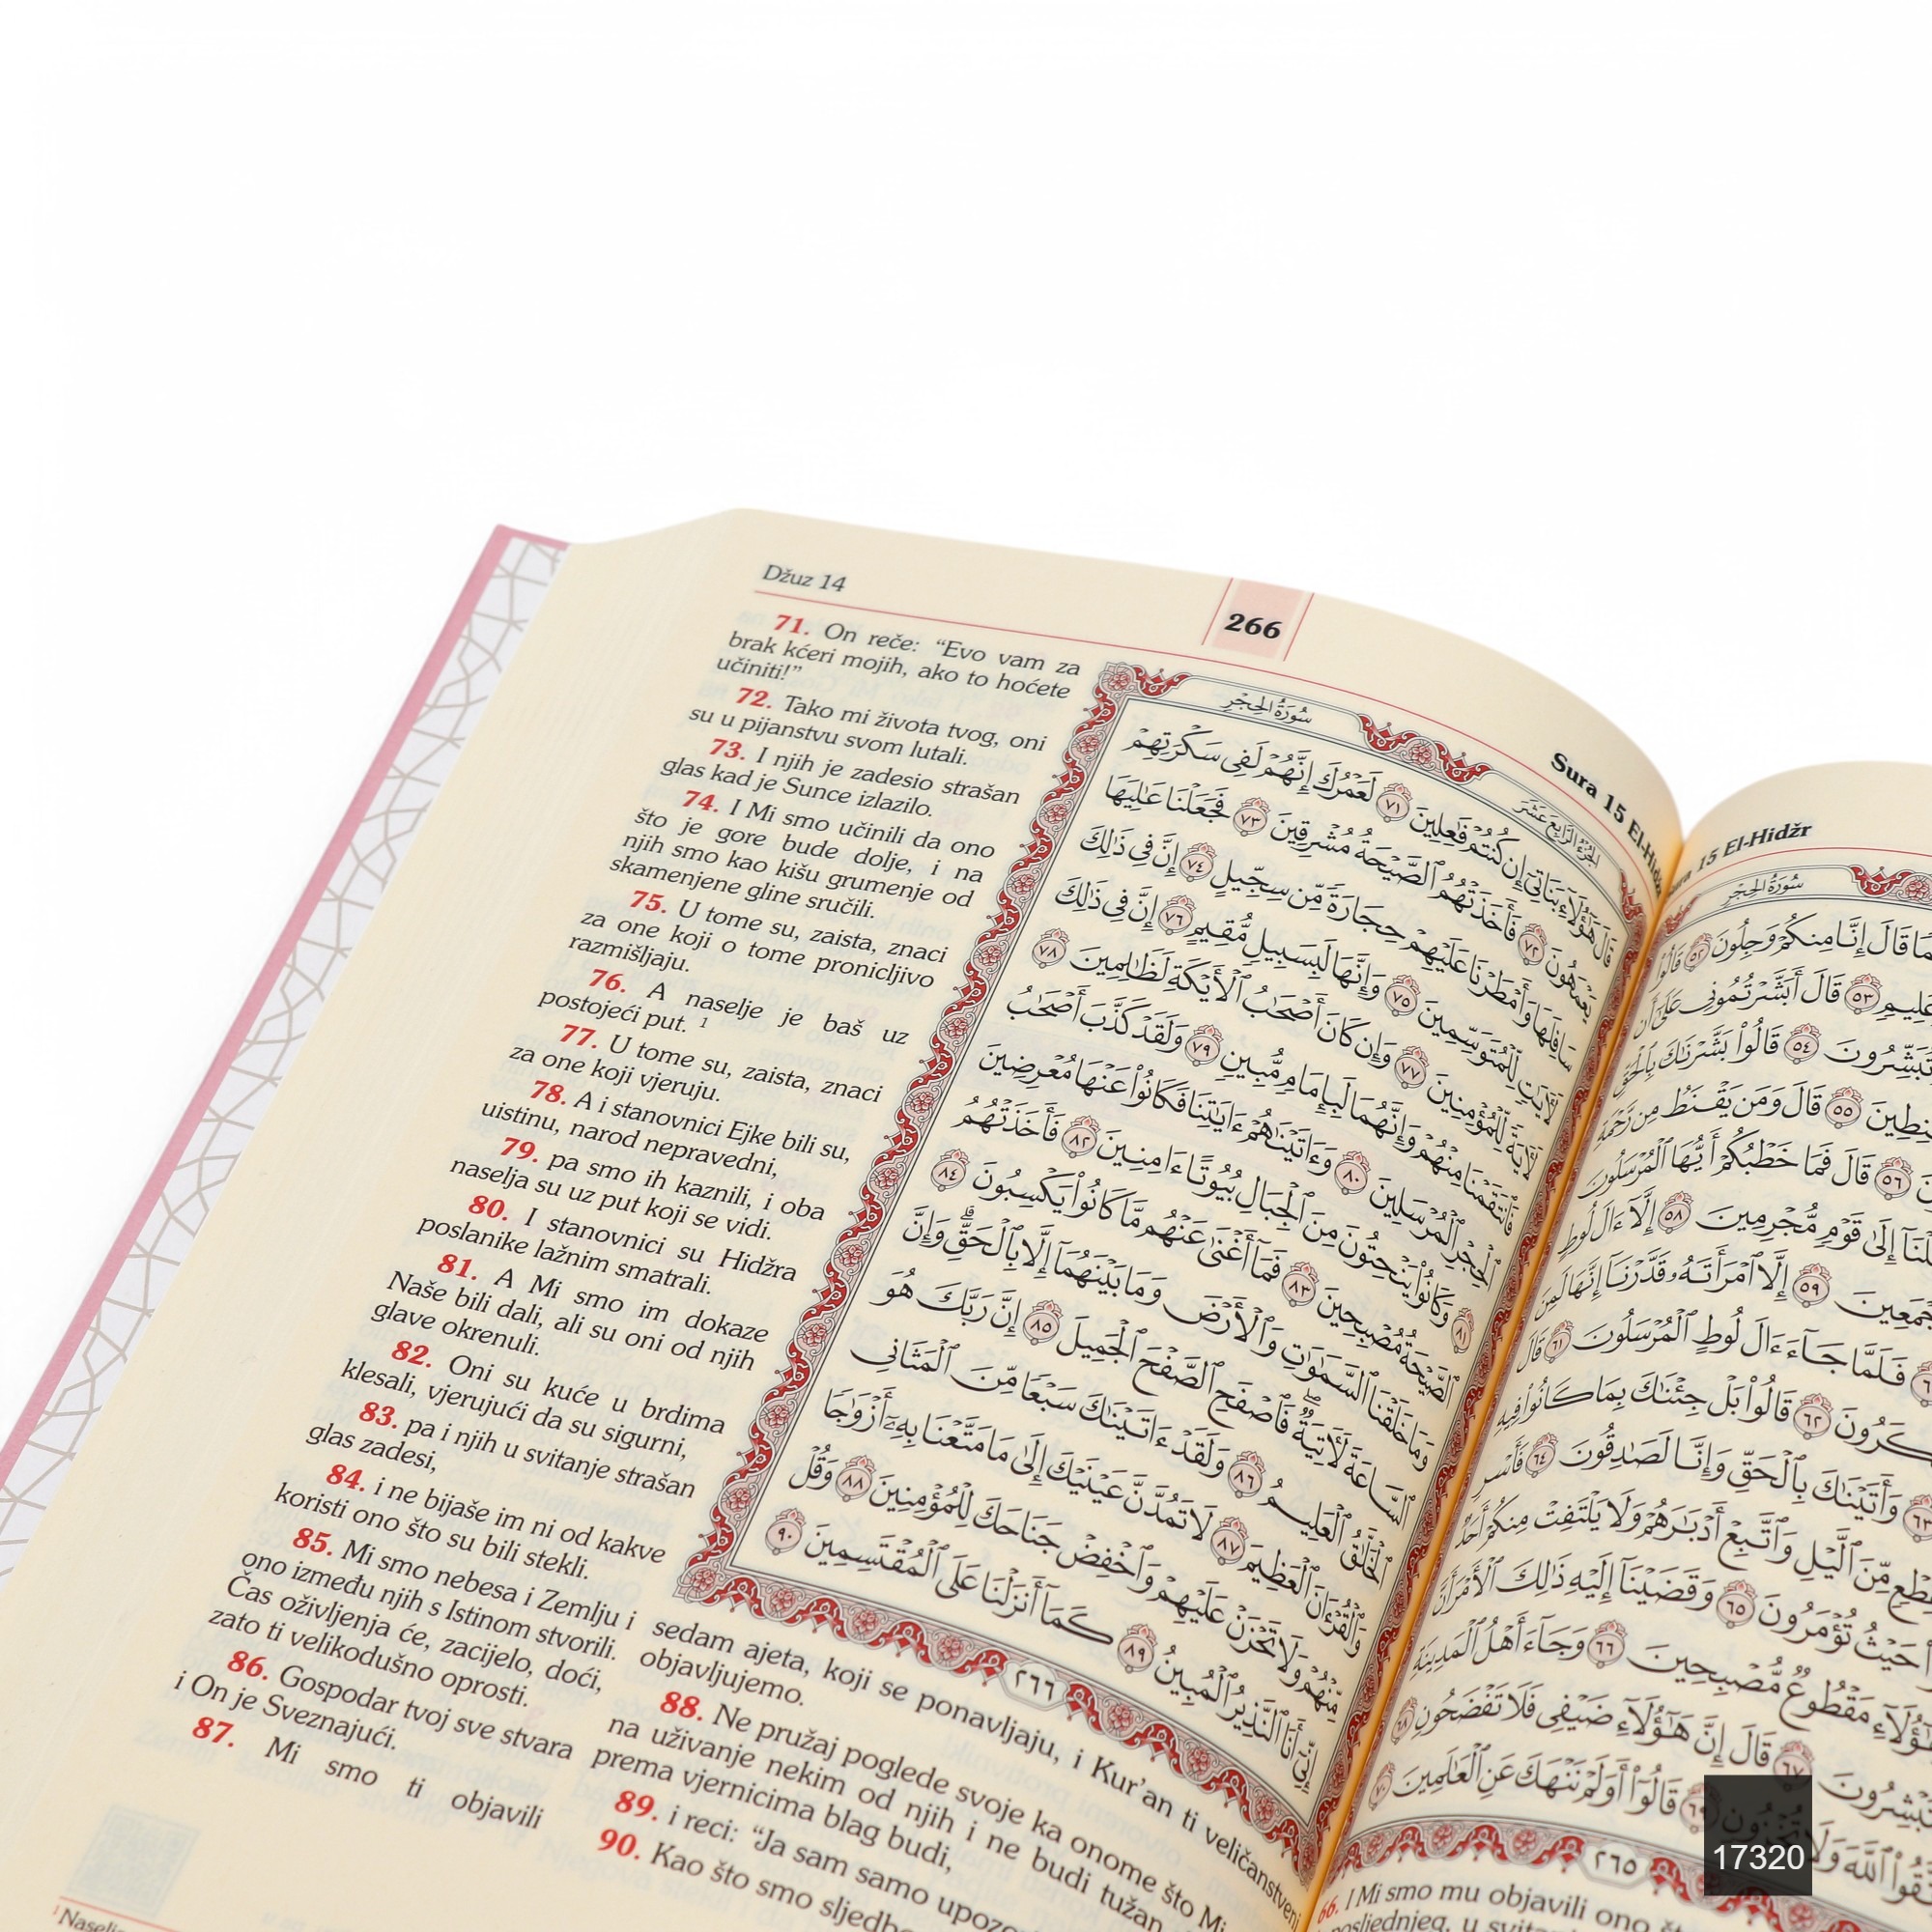 Džuz 14
266
Sura 15 El-Hidžr
71. On reče: “Evo vam za
brak kćeri mojih, ako to hoćete
učiniti!”
72. Tako mi života tvog, oni
su u pijanstvu svom lutali.
73. I njih je zadesio strašan
glas kad je Sunce izlazilo.
74. I Mi smo učinili da ono
što je gore bude dolje, i na
njih smo kao kišu grumenje od
skamenjene gline sručili.
75. U tome su, zaista, znaci
za one koji o tome pronicljivo
razmišljaju.
76. A naselje je baš uz
postojeći put. 1
77. U tome su, zaista, znaci
za one koji vjeruju.
78. A i stanovnici Ejke bili su,
uistinu, narod nepravedni,
79. pa smo ih kaznili, i oba
naselja su uz put koji se vidi.
80. I stanovnici su Hidžra
poslanike lažnim smatrali.
81. A Mi smo im dokaze
Naše bili dali, ali su oni od njih
glave okrenuli.
82. Oni su kuće u brdima
klesali, vjerujući da su sigurni,
83. pa i njih u svitanje strašan
glas zadesi,
84. i ne bijaše im ni od kakve
koristi ono što su bili stekli.
85. Mi smo nebesa i Zemlju i
ono između njih s Istinom stvorili.
Čas oživljenja će, zacijelo, doći,
zato ti velikodušno oprosti.
86. Gospodar tvoj sve stvara
i On je Sveznajući.
87. Mi smo ti objavili
سُورَةُ الحِجْرِ
الجُزْءُ الرَّابِعَ عَشَرَ
قَالَ هَٰٓؤُلَآءِ بَنَاتِىٓ إِن كُنتُمْ فَٰعِلِينَ ٧١ لَعَمْرُكَ إِنَّهُمْ لَفِى سَكْرَتِهِمْ
يَعْمَهُونَ ٧٢ فَأَخَذَتْهُمُ ٱلصَّيْحَةُ مُشْرِقِينَ ٧٣ فَجَعَلْنَا عَٰلِيَهَا
سَافِلَهَا وَأَمْطَرْنَا عَلَيْهِمْ حِجَارَةً مِّن سِجِّيلٍ ٧٤ إِنَّ فِى ذَٰلِكَ
لَءَايَٰتٍ لِّلْمُتَوَسِّمِينَ ٧٥ وَإِنَّهَا لَبِسَبِيلٍ مُّقِيمٍ ٧٦ إِنَّ فِى ذَٰلِكَ
لَءَايَةً لِّلْمُؤْمِنِينَ ٧٧ وَإِن كَانَ أَصْحَٰبُ ٱلْأَيْكَةِ لَظَٰلِمِينَ ٧٨
فَٱنتَقَمْنَا مِنْهُمْ وَإِنَّهُمَا لَبِإِمَامٍ مُّبِينٍ ٧٩ وَلَقَدْ كَذَّبَ أَصْحَٰبُ
ٱلْحِجْرِ ٱلْمُرْسَلِينَ ٨٠ وَءَاتَيْنَٰهُمْ ءَايَٰتِنَا فَكَانُوا۟ عَنْهَا مُعْرِضِينَ
٨١ وَكَانُوا۟ يَنْحِتُونَ مِنَ ٱلْجِبَالِ بُيُوتًا ءَامِنِينَ ٨٢ فَأَخَذَتْهُمُ
ٱلصَّيْحَةُ مُصْبِحِينَ ٨٣ فَمَآ أَغْنَىٰ عَنْهُم مَّا كَانُوا۟ يَكْسِبُونَ ٨٤
وَمَا خَلَقْنَا ٱلسَّمَٰوَٰتِ وَٱلْأَرْضَ وَمَا بَيْنَهُمَآ إِلَّا بِٱلْحَقِّ وَإِنَّ
ٱلسَّاعَةَ لَءَاتِيَةٌ فَٱصْفَحِ ٱلصَّفْحَ ٱلْجَمِيلَ ٨٥ إِنَّ رَبَّكَ هُوَ
ٱلْخَلَّٰقُ ٱلْعَلِيمُ ٨٦ وَلَقَدْ ءَاتَيْنَٰكَ سَبْعًا مِّنَ ٱلْمَثَانِى
وَٱلْقُرْءَانَ ٱلْعَظِيمَ ٨٧ لَا تَمُدَّنَّ عَيْنَيْكَ إِلَىٰ مَا مَتَّعْنَا بِهِۦٓ أَزْوَٰجًا
مِّنْهُمْ وَلَا تَحْزَنْ عَلَيْهِمْ وَٱخْفِضْ جَنَاحَكَ لِلْمُؤْمِنِينَ ٨٨ وَقُلْ
إِنِّىٓ أَنَا ٱلنَّذِيرُ ٱلْمُبِينُ ٨٩ كَمَآ أَنزَلْنَا عَلَى ٱلْمُقْتَسِمِينَ ٩٠
٢٦٦
sedam ajeta, koji se ponavljaju, i Kur’an ti veličanstveni
objavljujemo.
88. Ne pružaj poglede svoje ka onome što Mi
na uživanje nekim od njih i ne budi tužan
prema vjernicima blag budi,
89. i reci: “Ja sam samo
90. Kao što smo
15 El-Hidžr
سُورَةُ الحِجْرِ
قَالَ إِنَّا مِنكُمْ وَجِلُونَ ٥٢ قَالُوا۟
٥٣ قَالَ أَبَشَّرْتُمُونِى عَلَىٰٓ أَن
تُبَشِّرُونَ ٥٤ قَالُوا۟ بَشَّرْنَٰكَ بِٱلْحَقِّ
٥٥ قَالَ وَمَن يَقْنَطُ مِن رَّحْمَةِ
٥٦ قَالَ فَمَا خَطْبُكُمْ أَيُّهَا ٱلْمُرْسَلُونَ
إِلَىٰ قَوْمٍ مُّجْرِمِينَ ٥٨ إِلَّآ ءَالَ لُوطٍ
٥٩ إِلَّا ٱمْرَأَتَهُۥ قَدَّرْنَآ إِنَّهَا لَمِنَ
فَلَمَّا جَآءَ ءَالَ لُوطٍ ٱلْمُرْسَلُونَ ٦١ قَالَ
٦٢ قَالُوا۟ بَلْ جِئْنَٰكَ بِمَا كَانُوا۟ فِيهِ
٦٣ وَأَتَيْنَٰكَ بِٱلْحَقِّ وَإِنَّا لَصَٰدِقُونَ ٦٤ فَأَسْرِ
مِّنَ ٱلَّيْلِ وَٱتَّبِعْ أَدْبَٰرَهُمْ وَلَا يَلْتَفِتْ مِنكُمْ أَحَدٌ
حَيْثُ تُؤْمَرُونَ ٦٥ وَقَضَيْنَآ إِلَيْهِ ذَٰلِكَ ٱلْأَمْرَ أَنَّ
مَقْطُوعٌ مُّصْبِحِينَ ٦٦ وَجَآءَ أَهْلُ ٱلْمَدِينَةِ
٦٧ قَالَ إِنَّ هَٰٓؤُلَآءِ ضَيْفِى فَلَا تَفْضَحُونِ ٦٨
ٱللَّهَ وَلَا تُخْزُونِ ٦٩ قَالُوٓا۟ أَوَلَمْ نَنْهَكَ عَنِ ٱلْعَٰلَمِينَ ٧٠
٢٦٥
66. I Mi smo mu objavili ono
17320